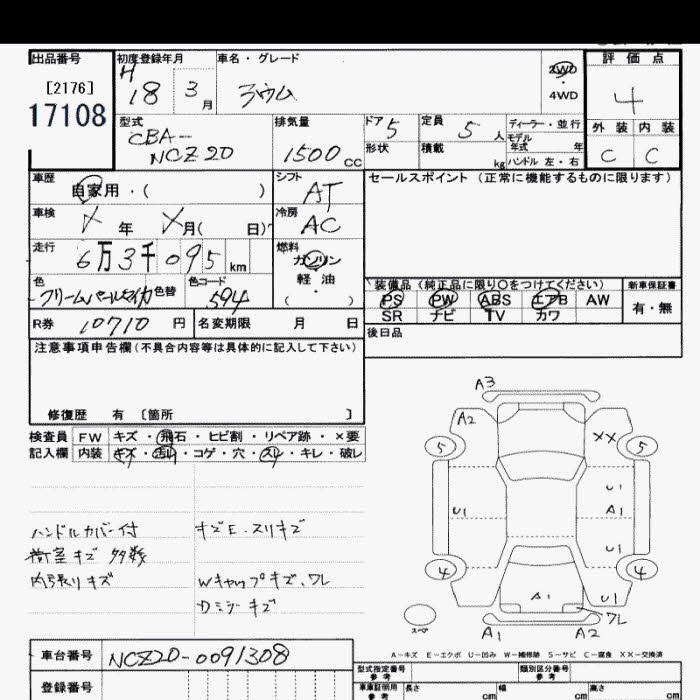 出品番号 初度登録年月 車名・グレード 評価点
[2176] H 18 3月 ラウム 2WD・4WD 4
17108
型式 CBA-NCZ20 排気量 1500CC ドア 5 定員 5人 ディーラー・並行
形状 積載 kg モデル年式 年 ハンドル 左・右
外装 内装
C C
車歴 自家用・( ) シフト AT セールスポイント (正常に機能するものに限ります)
車検 年 月( 日) 冷房 AC
走行 6万3千095km 燃料 ガソリン・軽油・( )
色 クリームパールマイカ 色替 色コード 594
装備品(純正品に限り○をつけてください) 新車保証書
PS PW ABS エアB AW 有・無
SR ナビ TV カワ
R券 10710円 名変期限 月 日 後日品
注意事項申告欄(不具合内容等は具体的に記入して下さい)
修復歴 有 〔箇所 〕
検査員 FW キズ・飛石・ヒビ割・リペア跡・×要
記入欄 内装 キズ・汚レ・コゲ・穴・スレ・キレ・破レ
ハンドルカバー付 キズE・スリキズ
キズ多数
内張リキズ Wキャップキズ、ワレ
キズ
A3
A2 XX
5 5
U1 U1
A1
U1
4 4
A1 U1
ワレ
スペア A1 A2
A-キズ E-エクボ U-凹み W-補修跡 S-サビ C-腐食 XX-交換済
車台番号 NCZ20-0091308
型式指定番号 参考 類別区分番号 参考
登録番号 車庫証明用 参考 長さ cm 幅 cm 高さ cm